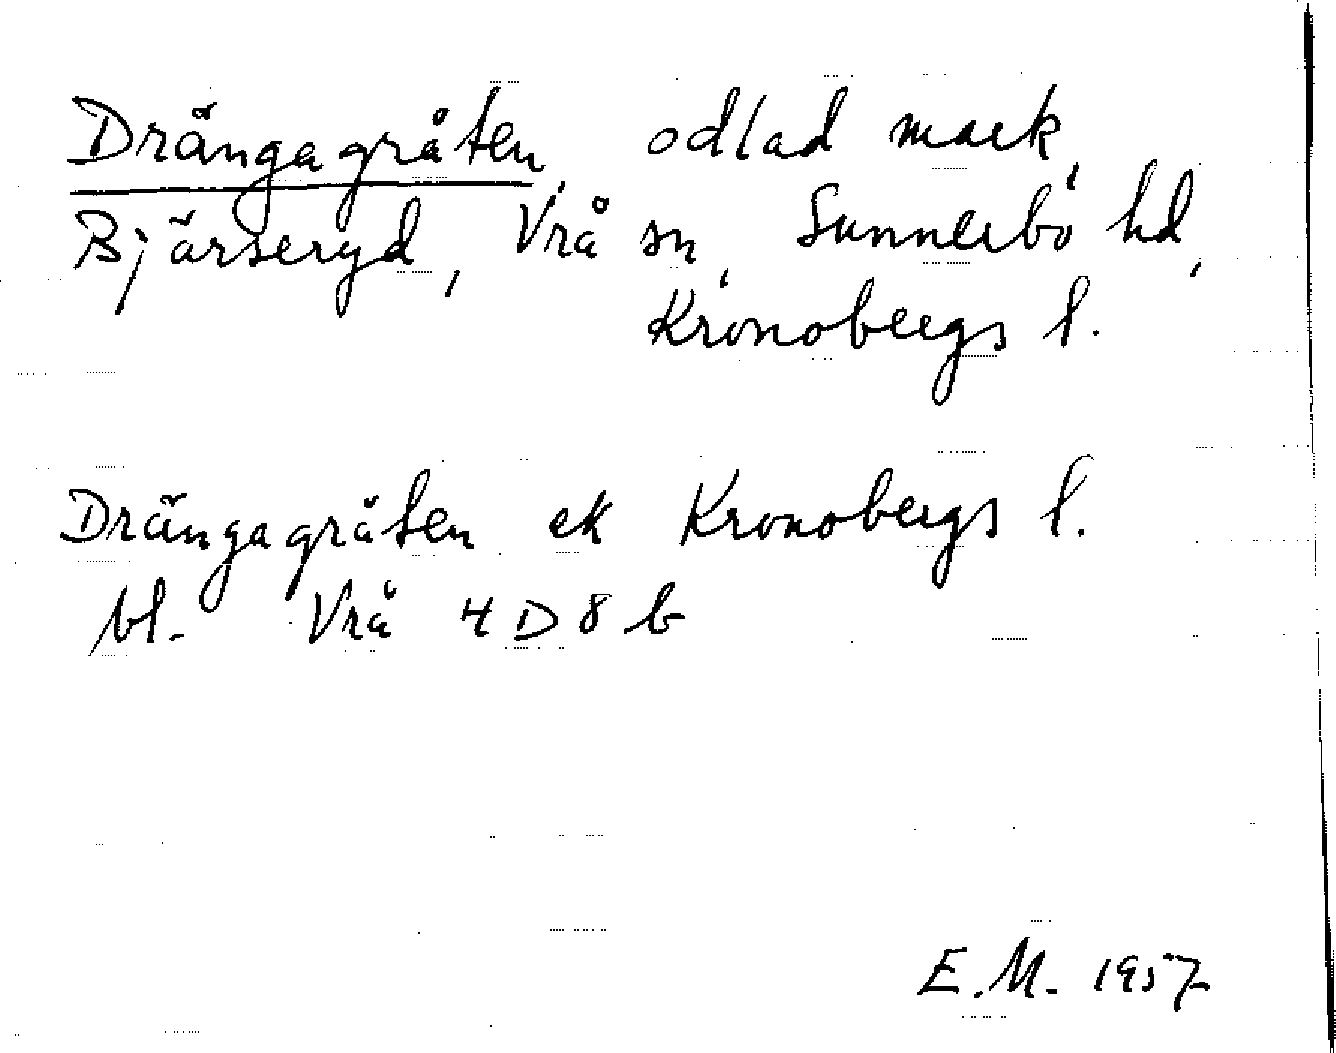 Drängagråten, odlad mark,
Bjärseryd, Vrå sn, Sunnerbo hd,
Kronobergs l.
Drängagråten ek Kronobergs l.
bl. Vrå 4 D 8 b
E.M. 1957